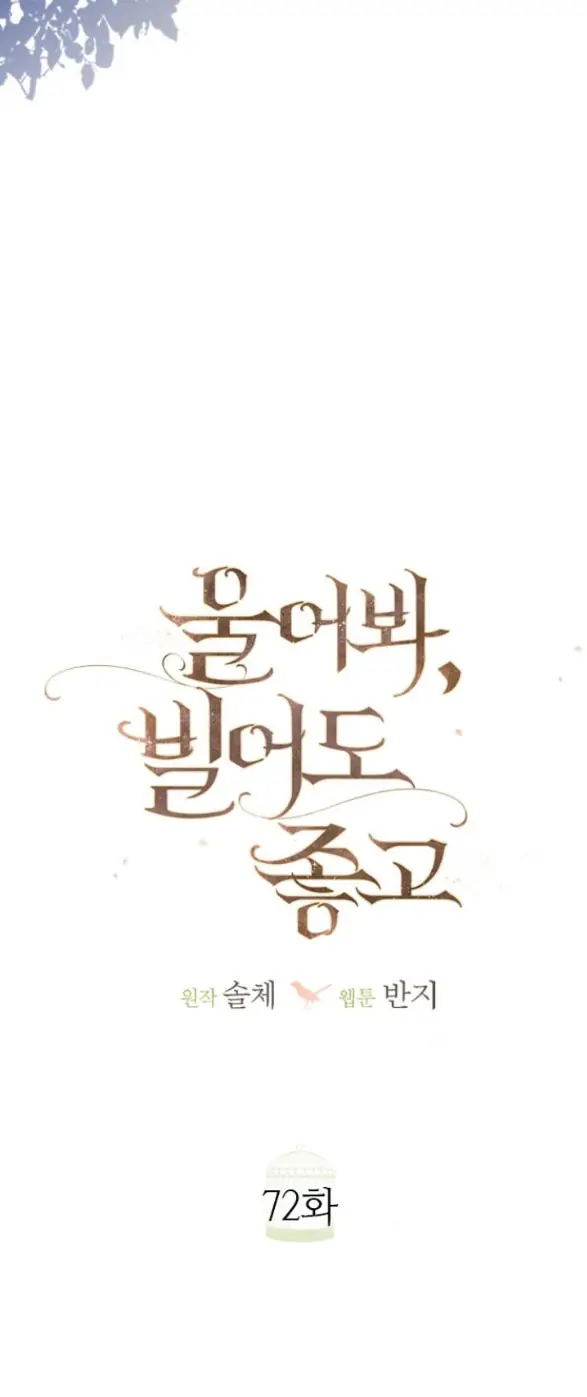 울어봐,
빌어도
좋고
원작 솔체 웹툰 반지
72화